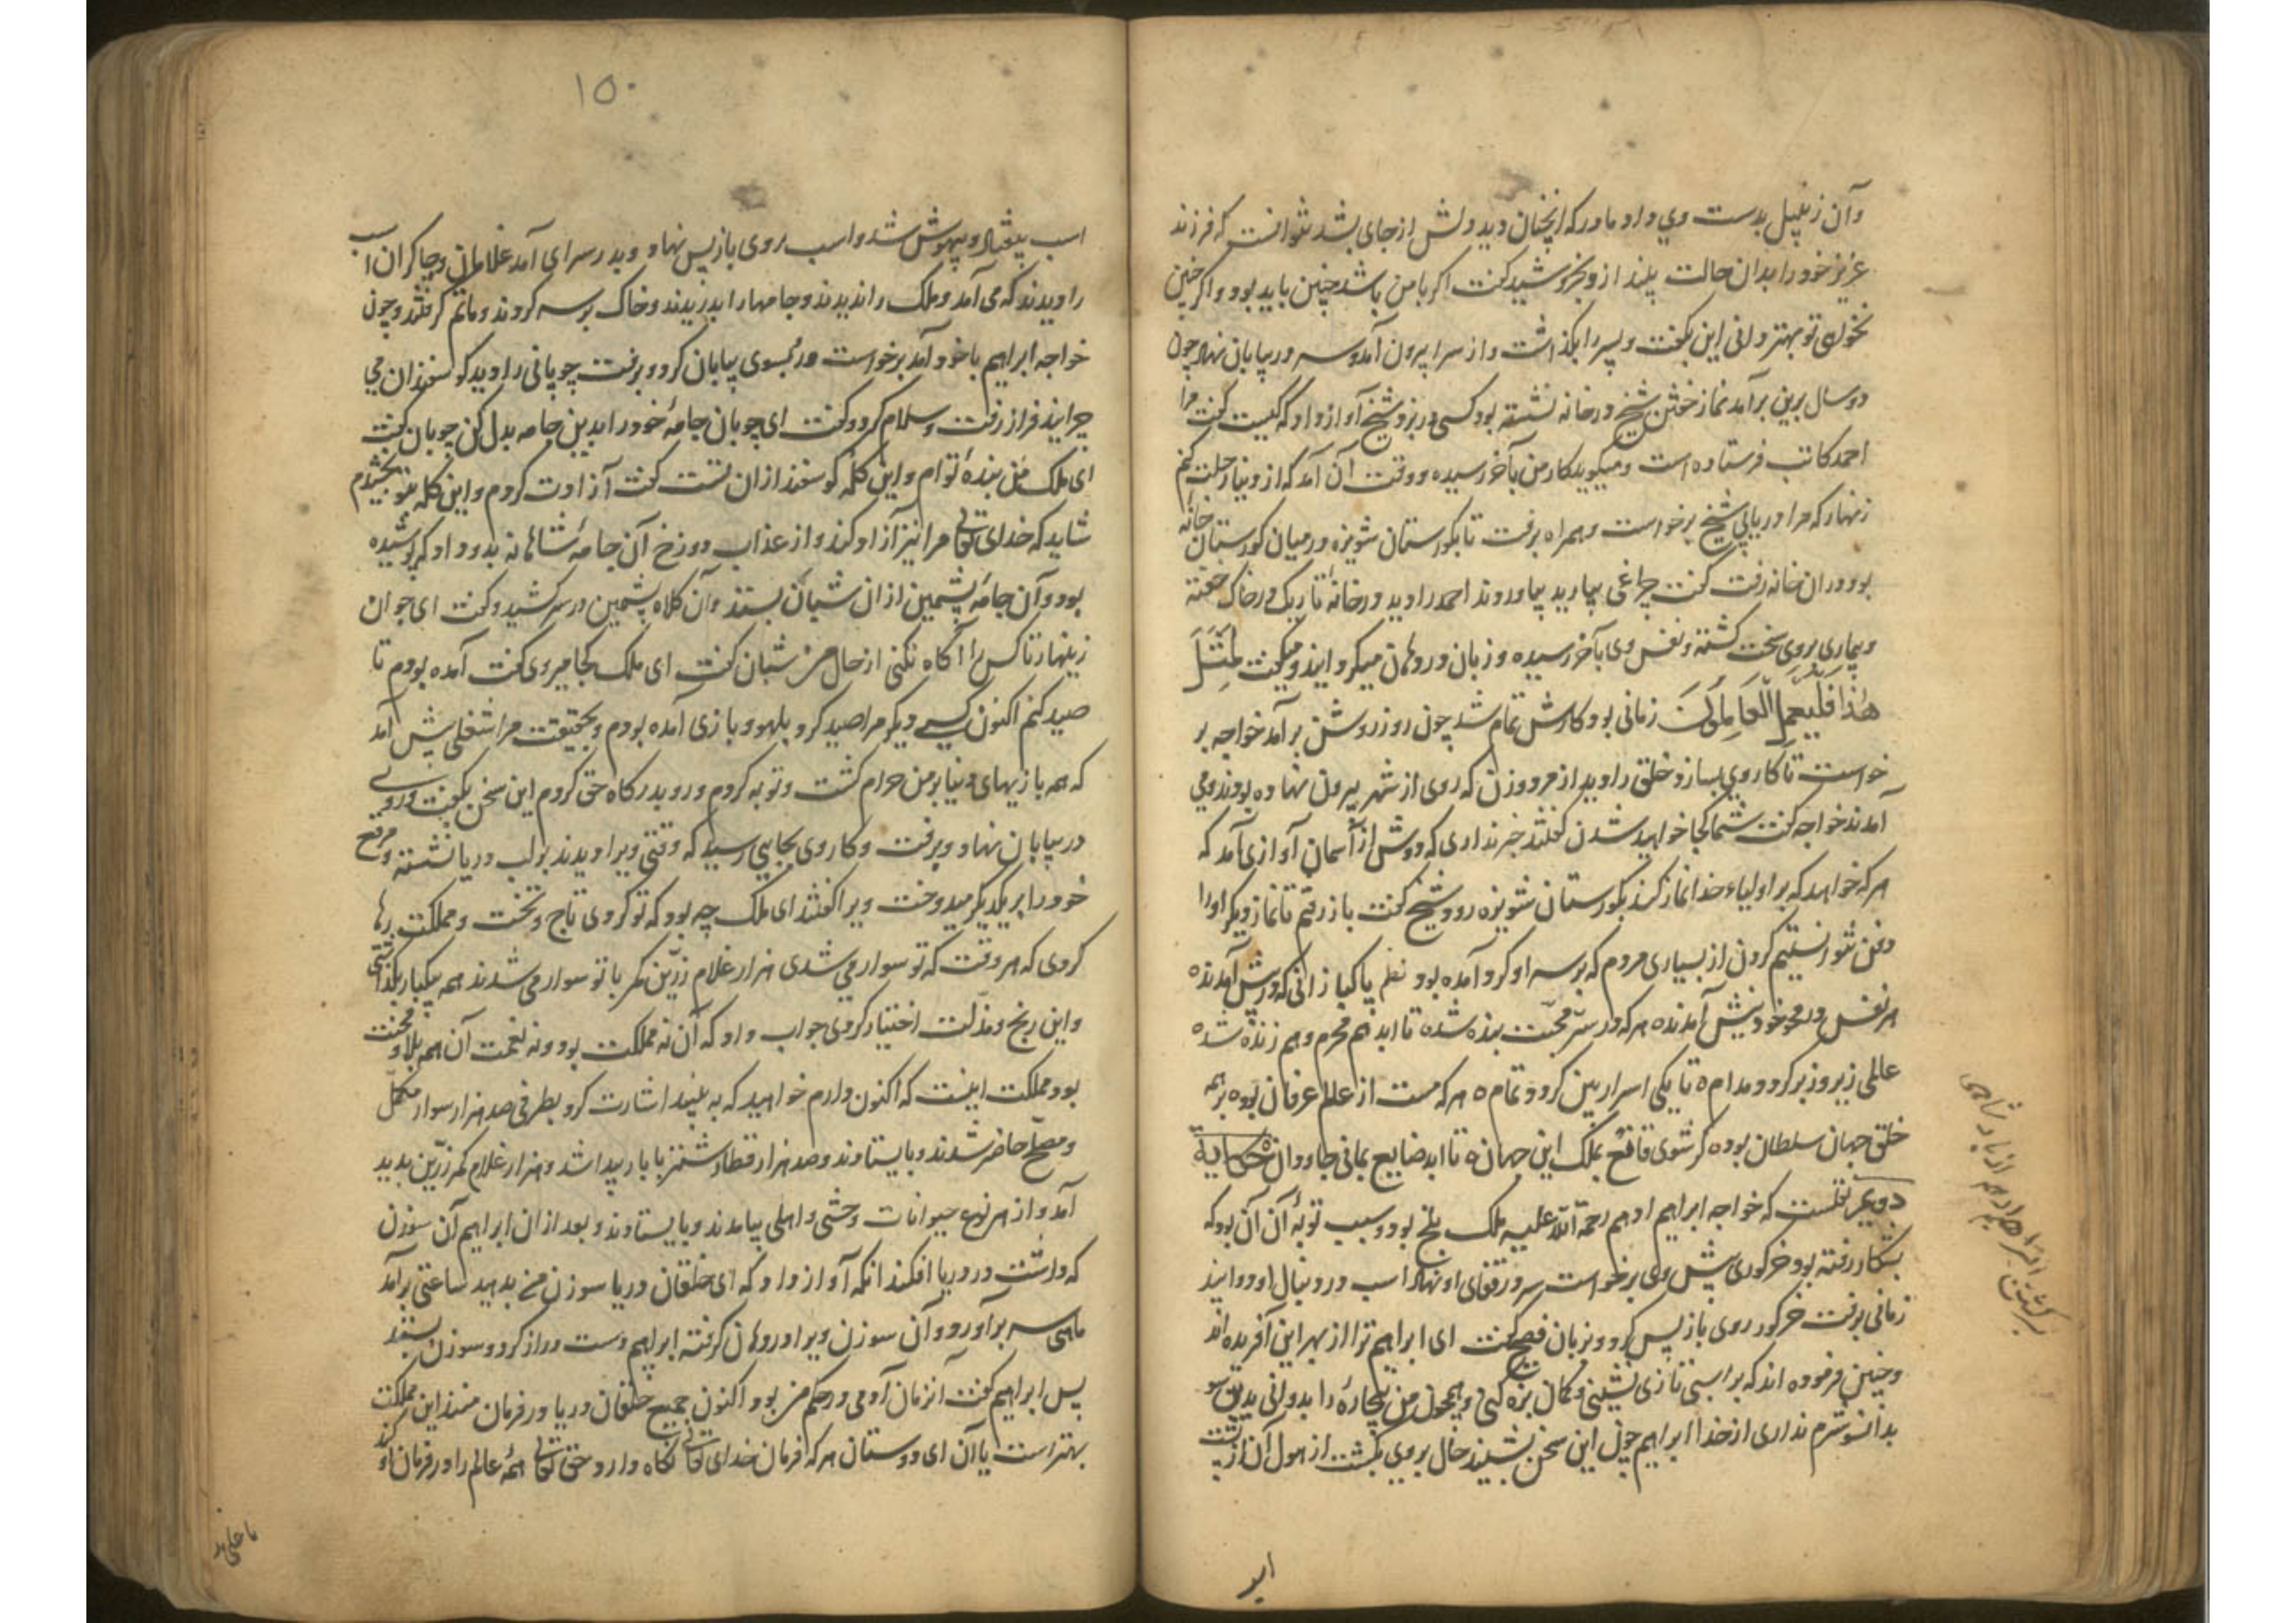 وآن زنبیل بدست وی داد مادر که انچنان دید دلش از جای بشد نتوانست که فرزند
عزیز خود را بدان حالت بیند ازو بخروشید گفت اگر با من باشد چنین باید بود و اگر چنین
نخواهی تو بهتر دانی این بگفت و پسر را بگذاشت و از سرا بیرون آمد و سر در بیابان نهاد چون
دو سال برین برآمد نماز خفتن شیخ در خانه نشسته بود کسی در بزد شیخ آواز داد که کیست گفت مرا
احمد کاتب فرستاده است و میگوید کار من بآخر رسیده و وقت آن آمد که از دنیا رحلت کنم
زنهار که مرا دریابی شیخ برخواست و همراه برفت تا بگورستان شونیزه در میان گورستان خانه
بود در ان خانه رفت گفت چراغی بیارید بیاوردند احمد را دید در خانهٔ تاریک در خاک خفته
و بیماری بروی سخت گشته و نفس وی بآخر رسیده و زبان در دهان میگردانید و میگفت لِمِثْلِ
هٰذا فَلْيَعْمَلِ الْعَامِلُونَ زمانی بود کارش تمام شد چون روز روشن برآمد خواجه بر
خواست تا کار وی بسازد خلق را دید از مرد و زن که روی از شهر بیرون نهاده بودند و می
آمدند خواجه گفت شما کجا خواهید شدن گفتند خبر نداری که دوش از آسمان آوازی آمد که
هر که خواهد که بر اولیاء خدا نماز کند بگورستان شونیزه رود شیخ گفت باز رفتم تا نماز دیگر او را
دفن نتوانستیم کردن از بسیاری مردم که بر سر او گرد آمده بود نظم پاکبازانی که درویش آمدند
هر نفس در محو خود بیش آمدند هر که در سرّ محبّت بنده شد تا ابد هم محرم و هم زنده شد
عالمی زیر و زبر گردد مدام تا یکی اسرار بین گردد تمام هر که مست از عالم عرفان بود بر همه
خلق جهان سلطان بود گر شوی قانع بملک این جهان تا ابد ضایع بمانی جاودان حکایة
دویم نقلست که خواجه ابراهیم ادهم رحمة الله علیه ملک بلخ بود و سبب توبهٔ آن آن بود که
بشکار رفته بود خر گوری پیش وی برخواست سر در قفای او نهاد اسب در دنبال او دوانید
زمانی برفت خر گور روی باز پس کرد و بزبان فصیح گفت ای ابراهیم ترا از بهر این آفریده اند
و چنین فرموده اند که بر اسبی تازی نشینی و کمان بزه کنی و همچون من بیچاره را بدوانی بدین
بدانسو شرم نداری از خدا ابراهیم چون این سخن بشنید حال بروی بگشت از هول آن از پشت
برگشتن ابراهیم ادهم از پادشاهی
اسب
۱۵۰
اسب بیفتاد و بیهوش شد و اسب روی باز پس نهاد و بدر سرای آمد غلامان و چاکران اسب
را دیدند که می آمد و ملک را ندیدند و جامها را بدریدند و خاک بر سر کردند و ماتم گرفتند و چون
خواجه ابراهیم با خود آمد برخواست و رو بسوی بیابان کرد و برفت چوپانی را دید گوسفندان می
چرانید فراز رفت و سلام کرد و گفت ای چوبان جامهٔ خود را بدین جامه بدل کن چوبان گفت
ای ملک من بندهٔ توام و این گلّه گوسفند از ان تست گفت آزادت کردم و این گله بتو بخشیدم
شاید که خدای تعالی مرا نیز آزاد کند و از عذاب دوزخ آن جامهٔ شاهانه بدو داد که پوشیده
بود و آن جامهٔ پشمین از ان شبان بستد و آن کلاه پشمین در سر کشید و گفت ای جوان
زینهار تا کس را آگاه نکنی از حال من شبان گفت ای ملک کجا میروی گفت آمده بودم تا
صید کنم اکنون کسی دیگر مرا صید کرد و بلهو و بازی آمده بودم و بحقیقت مرا شغلی پیش آمد
که همه بازیهای دنیا بر من حرام گشت و توبه کردم و رو بدرگاه حق کردم این سخن بگفت و روی
در بیابان نهاد و برفت و کار وی بجایی رسید که وقتی ویرا دیدند بر لب دریا نشسته و مرقع
خود را بر یکدیگر میدوخت ویرا گفتند ای ملک چه بود که تو کردی تاج و تخت و مملکت رها
کردی که هر وقت که تو سوار می شدی هزار غلام زرّین کمر با تو سوار می شدند همه بیکبار بگذاشتی
و این رنج و مذلّت اختیار کردی جواب داد که آن نه مملکت بود و نه نعمت آن همه بلا و محنت
بود مملکت اینست که اکنون دارم خواهید که به بینید اشارت کرد بطرفی صد هزار سوار مکمل
و مسلّح حاضر شدند و بایستادند و صد هزار قطار شتر با بار پیدا شد و هزار غلام کمر زرّین پدید
آمد و از هر نوع حیوانات وحشی و اهلی بیامدند و بایستادند و بعد از ان ابراهیم آن سوزن
که داشت در دریا افکند انگه آواز داد که ای خلقان دریا سوزن من بدهید ساعتی برآمد
ماهی سر برآورد و آن سوزن ویرا در دهان گرفته ابراهیم دست دراز کرد و سوزن بستد
پس ابراهیم گفت آنزمان آدمی در حکم من بود اکنون جمیع خلقان دریا در فرمان منند این مملکت
بهتر است یا آن ای دوستان هر که فرمان خدای تعالی نگاه دارد حق تعالی همهٔ عالم را در فرمان او کند